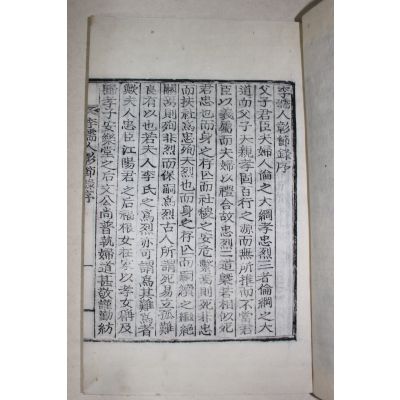 李孺人彰節錄序
父子君臣夫婦人倫之大綱孝忠烈三者倫綱之大
道而父子大親孝固百行之源而無所推而不當君
臣以義屬而夫婦以禮合故忠烈二道槩若相似死
君忠也而身之存亡而社稷之安危繫焉則死非忠
而扶社爲忠殉夫烈也而身之存亡而嗣續之繼絶
關焉則殉非烈而保嗣爲烈古人所謂死易立孤難
良有以也若夫人李氏之爲烈亦可謂爲其難焉者
歟夫人忠臣江陽君之后福根女在家以孝女稱及
歸孝子安堂之后文公尚普執婦道甚敬謹勤紡
李孺人彰節錄序 一